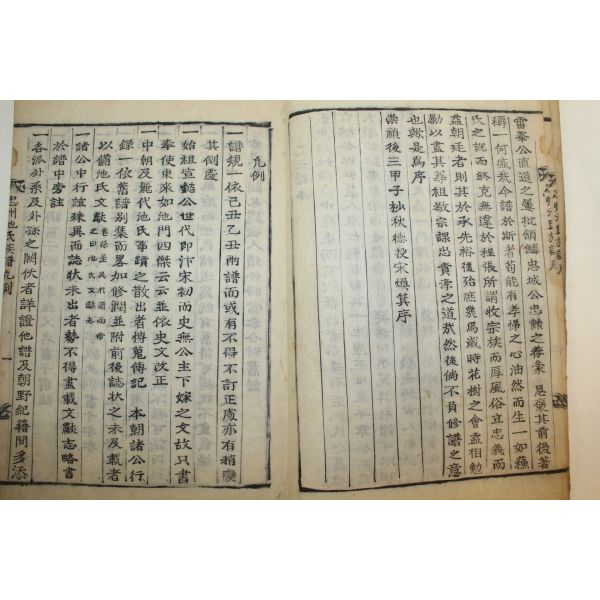 雷峯公直道之蹇批頷鱗忠城公忠勳之眷蒙 恩獎其前後著
稱一何盛哉今譜於斯者苟能有孝悌之心油然而生一如蘓
氏之說而終克無違於程張所謂收宗族而厚風俗立忠義而
益朝廷者則其於承先裕後殆庶幾焉歲時花樹之會盍相勉
勵以盡其尊祖敬宗課忠責孝之道哉然後倘不負修譜之意
也歟是爲序
崇禎後三甲子抄秋德殷宋煥箕序
凡例
一譜規一依己丑乙丑兩譜而或有不得不訂正處亦有稍變
其例處
一始祖宣懿公世代即汴宋初而史無公主下嫁之文故只書
奉使東來如池門四傑云云並依史文改正
一中朝及麗代池氏事蹟之散出者博蒐傳記 本朝諸公行
錄一依舊譜別集而畧加修潤並附前後誌狀之未及載者
以備池氏文獻
之曰池氏文獻志
一諸公中行誼殊異而誌狀未出者勢不得盡載文獻志略書
於譜中旁註
一各派外系及外孫之闕佚者詳證他譜及朝野紀籍間多添
忠州池氏族譜凡例
一